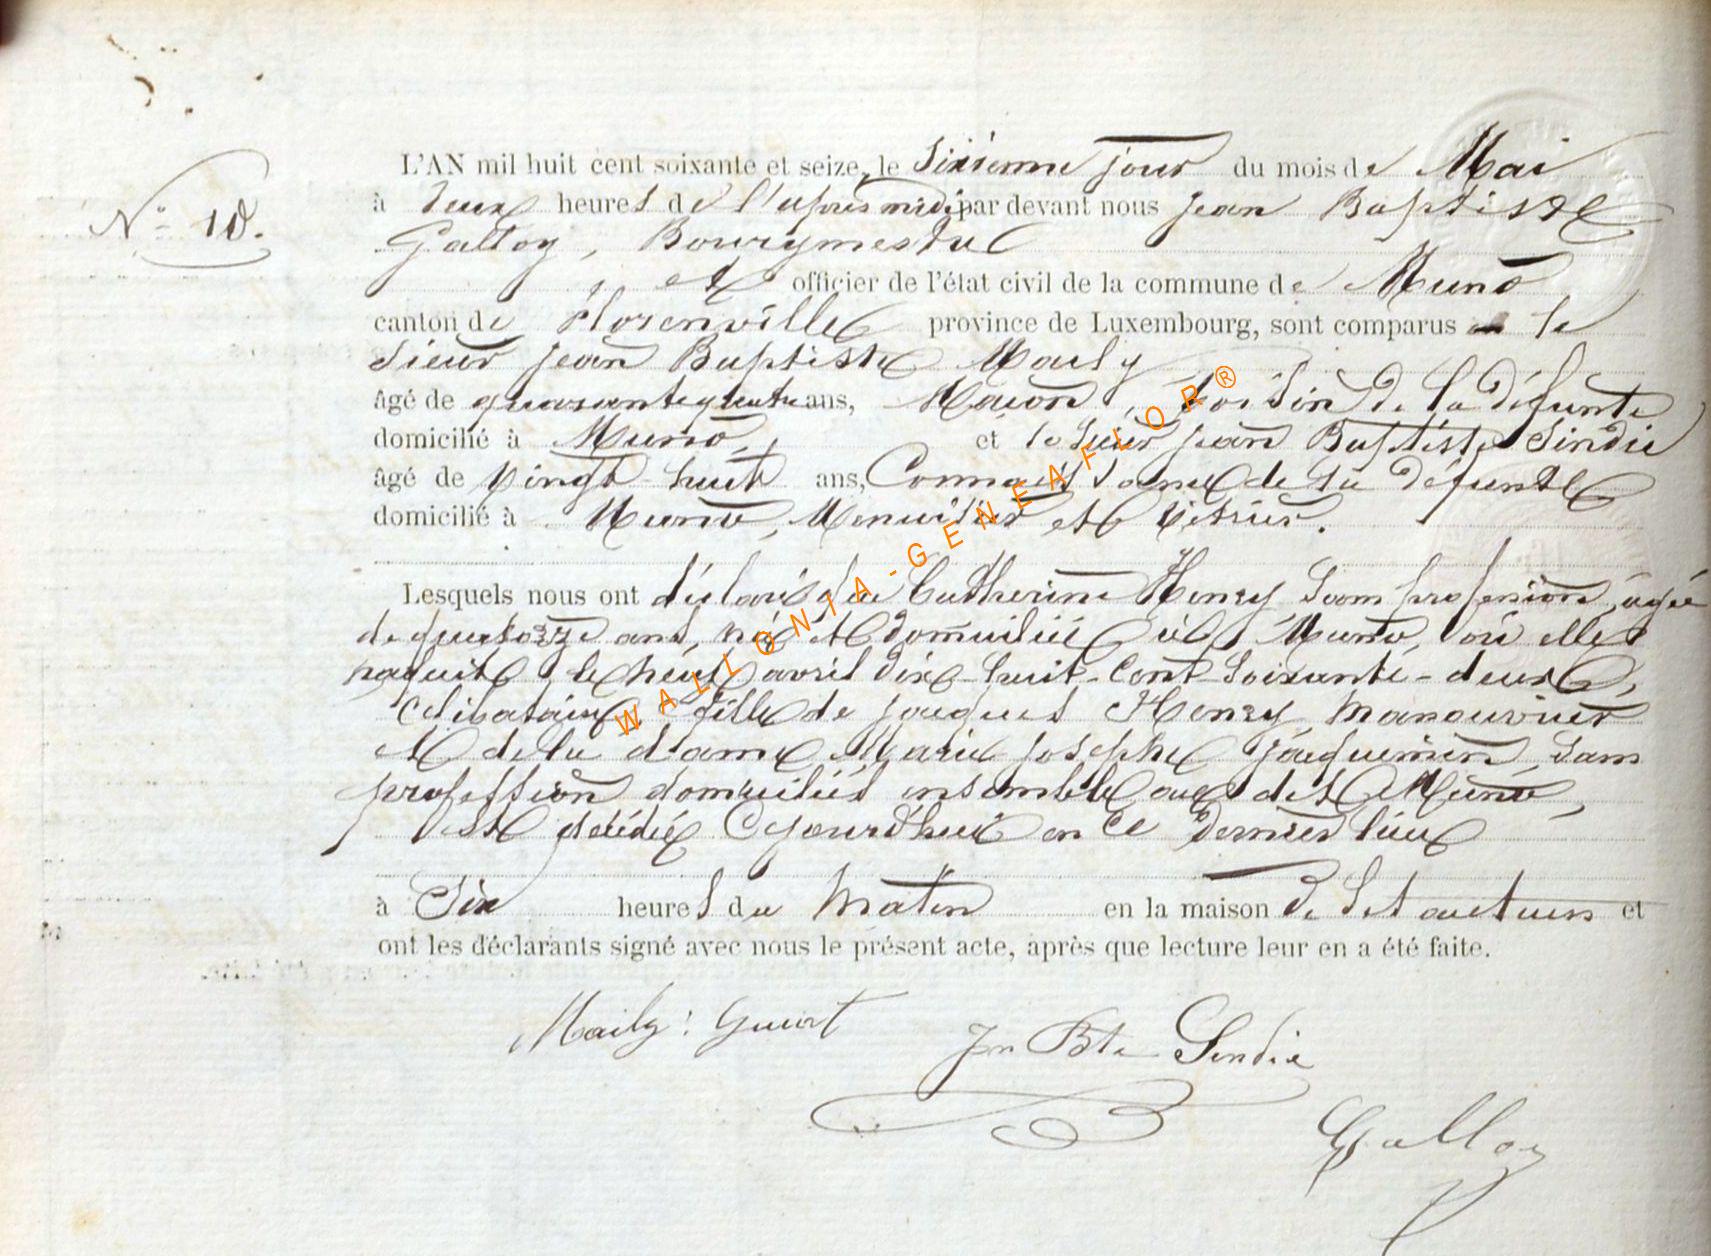 N° 10.
L'AN mil huit cent soixante et seize, le Sixième jour du mois de Mai
à deux heures de l'après midi par devant nous Jean Baptiste
Galloy, Bourgmestre
et officier de l'état civil de la commune de Muno
canton de Florenville province de Luxembourg, sont comparus le
Sieur Jean Baptiste Maily
âgé de quarante quatre ans, Maçon, Voisin de la défunte
domicilié à Muno, et le Sieur Jean Baptiste Sindic
âgé de Vingt huit ans, Connaissance de la défunte
domicilié à Muno, Menuisier et Vitrier.
Lesquels nous ont déclaré que Catherine Henry Sans profession, âgée
de quatorze ans, née et domiciliée à Muno, où elle
naquit le neuf avril dix-huit-cent-soixante-deux,
Célibataire, fille de Jacques Henry, Manouvrier
et de la dame Marie Josephe Jacquemin, Sans
profession domiciliés ensemble au dit Muno,
est décédée Cejourd'hui en ce dernier lieu
à Six heures du Matin en la maison de et
ont les déclarants signé avec nous le présent acte, après que lecture leur en a été faite.
Maily Jn Bte Sindic
Galloy
WALLONIA-GENEAFLOR®